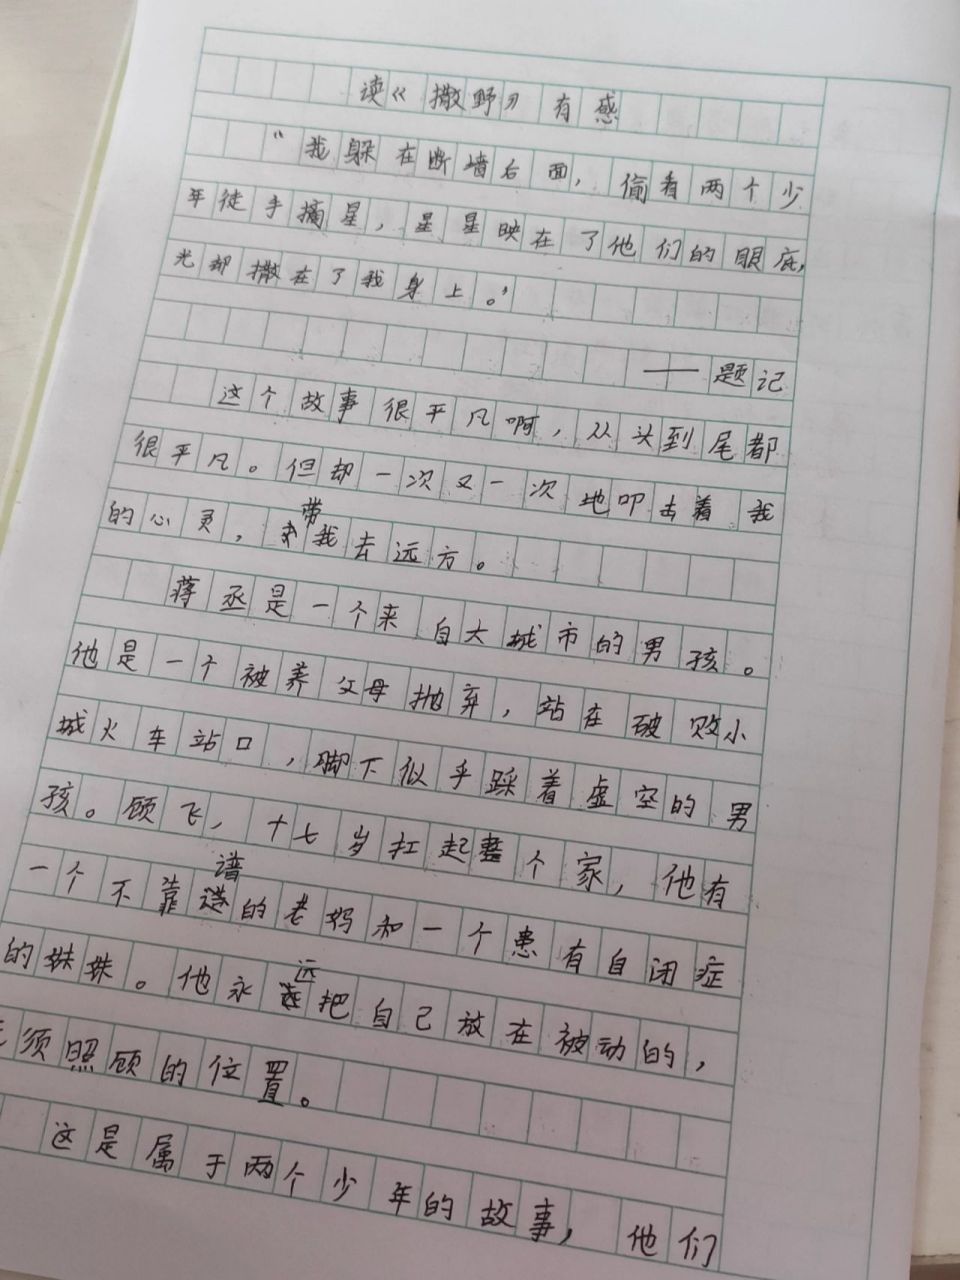 读《撒野》有感
“我躲在断墙后面，偷看两个少
年徒手摘星，星星映在了他们的眼底，
光却撒在了我身上。”
——题记
这个故事很平凡啊，从头到尾都
很平凡。但却一次又一次地叩击着我
的心灵，带我去远方。
蒋丞是一个来自大城市的男孩。
他是一个被养父母抛弃，站在破败小
城火车站口，脚下似乎踩着虚空的男
孩。顾飞，十七岁扛起整个家，他有
一个不靠谱的老妈和一个患有自闭症
的妹妹。他永远把自己放在被动的，
须照顾的位置。
这是属于两个少年的故事，他们